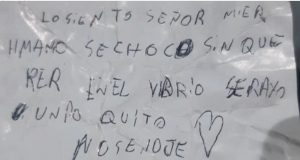 LO SIENTO SEÑOR MIER
HMANO SE CHOCO SIN QUE
RER ENEL VIDRIO SERAYO
UNPO QUITO
NOSENOJE